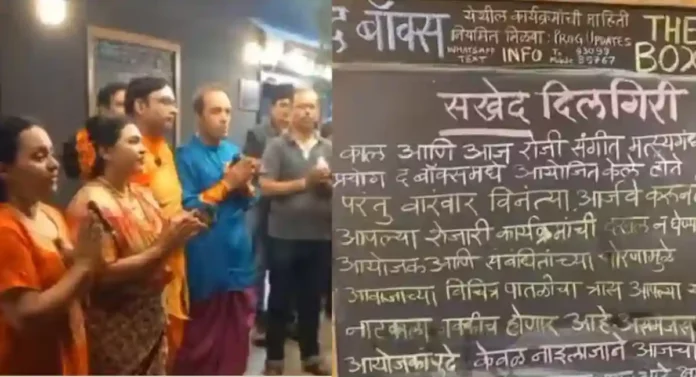 द बॉक्स
येथील कार्यक्रमांची माहिती
नियमित मिळवा: PROG UPDATES
WHATSAPP TEXT INFO To Mobile 93099 89767
THE BOX
सखेद दिलगिरी
काल आणि आज रोजी संगीत मत्स्यगंध
प्रयोग द बॉक्समध्ये आयोजित केले होते
परंतु वारंवार विनंत्या आर्जवे करून
आपल्या शेजारी कार्यक्रमांची दखल न घेण
आयोजक आणि संबंधितांच्या धोरणामुळे
आवाजाच्या विचित्र पातळीचा त्रास आपल्या
नाटकाला नक्कीच होणार आहे. असमंजस
आयोजकांपुढे केवळ नाइलाजाने आजचो